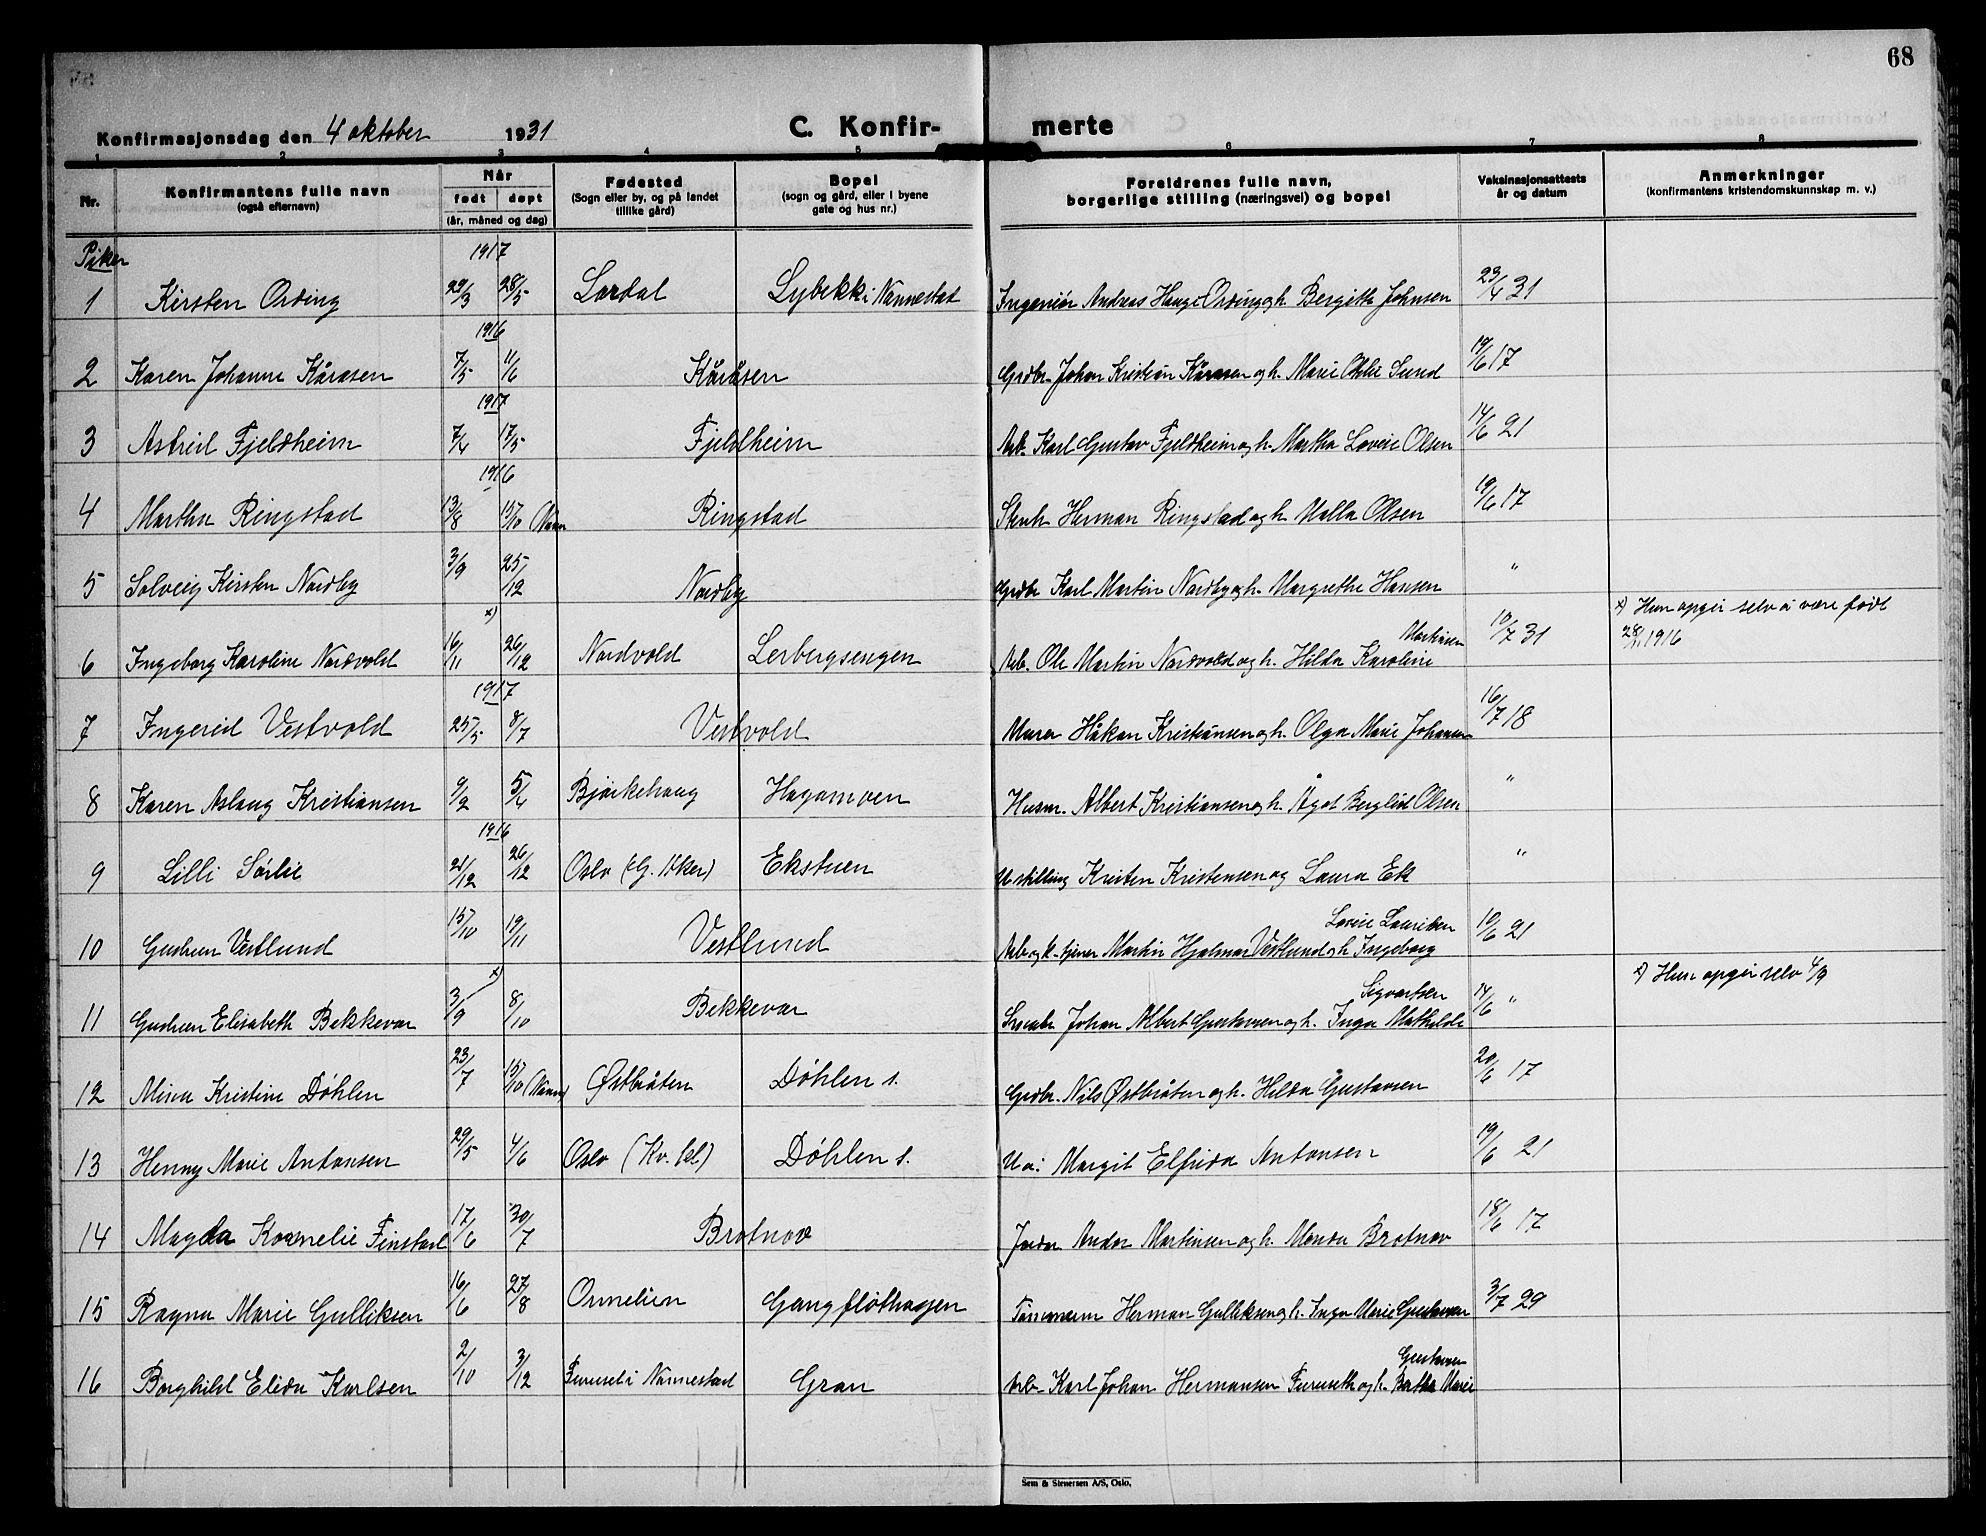 68
Konfirmasjonsdag den 4 oktober 1931 C. Konfir- merte
1 2 3 4 5 6 7 8
Nr. Konfirmantens fulle navn (også efternavn) Når født døpt (år, måned og dag) Fødested (Sogn eller by, og på landet tillike gård) Bopel (sogn og gård, eller i byene gate og hus nr.) Foreldrenes fulle navn, borgerlige stilling (næringsvei) og bopel Vaksinasjonsattests år og datum Anmerkninger (konfirmantens kristendomskunnskap m. v.)
Piker 1917
1 Kirsten Ording 29/3 28/5 Lardal Lybekk i Nannestad Ingeniør Andreas Hauge Ording og h. Bergitte Johnsen 23/4 31
1916
2 Karen Johanne Kåråsen 7/5 11/6 Kåråsen Grdbr. Johan Kristian Kåråsen og h. Marie Othilie Sund 19/6 17
1917
3 Astrid Fjeldheim 7/4 17/5 Fjeldheim Arb. Karl Gustav Fjeldheim og h. Martha Lovise Olsen 14/6 21
1916
4 Martha Ringstad 13/8 15/10 (Nann Ringstad Herman Ringstad og h. Valla Olsen 19/6 17
5 Solveig Kirsten Nordby 3/9 25/12 Nordby Grdbr Karl Martin Nordby og h. Margrethe Hansen "
x) x) Hun opgir selv å være født
6 Ingeborg Karoline Nordvold 16/11 26/12 Nordvold Lerbergsengen Arb. Ole Martin Nordvold og h. Hilda Karoline Martinsen 10/7 31 28/11 1916
1917
7 Ingerid Vestvold 25/5 8/7 Vestvold Murer Håkon Kristiansen og h. Olga Marie Johansen 16/7 18
8 Karen Aslaug Kristiansen 9/2 5/4 Bjørkehaug Hagamoen Husm. Albert Kristiansen og h. Ågot Berglid Olsen "
1916
9 Lilli Sørlie 21/12 26/12 Oslo (G. Aker) Ekstuen U stilling Kristen Kristensen og Laura Ek "
10 Gudrun Vestlund 15/10 19/11 Vestlund Arb og k.tjener Martin Hjalmar Vestlund og h. Ingeborg Lovise Lauritsen 10/6 21
x) x) Hun opgir selv 4/9
11 Gudrun Elisabeth Bekkevar 3/9 8/10 Bekkevar Johan Albert Gustavsen og h. Inga Mathilde Sigvartsen 14/6 "
12 Mina Kristine Døhlen 23/7 15/10 (Nann) Østbråten Døhlen s. Grdbr. Nils Østbråten og h. Hilda Gustavsen 20/6 17
13 Henny Marie Antonsen 29/5 4/6 Oslo (Kv. kl) Døhlen s. U a: Margit Elfrida Antonsen 19/6 21
14 Magda Kornelie Finstad 17/6 30/7 Brotnov Andor Martinsen og h. Manda Brotnov 18/6 17
15 Ragna Marie Gulliksen 16/6 27/8 Ornelien Gangfløthagen Herman Gulliksen og h. Inga Marie Gustavsen 3/7 29
16 Borghild Elida Karlsen 2/10 3/12 Furuset i Nannestad Gran Arb Karl Johan Hermansen Furuseth og h. Bertha Marie Gustavsen
Sem & Stenersen A/S, Oslo.